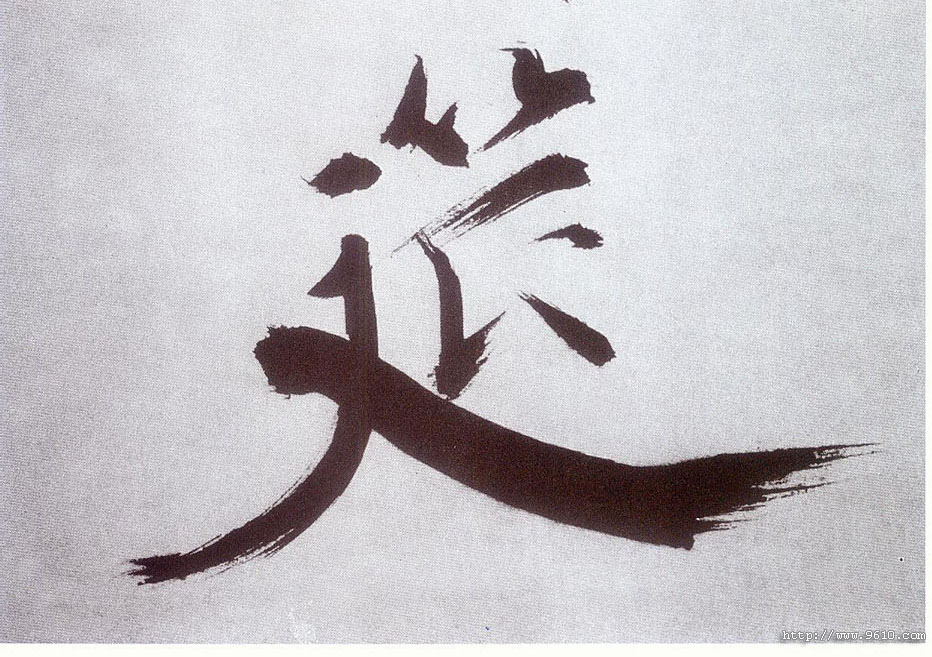 筵
http://www.9610.com